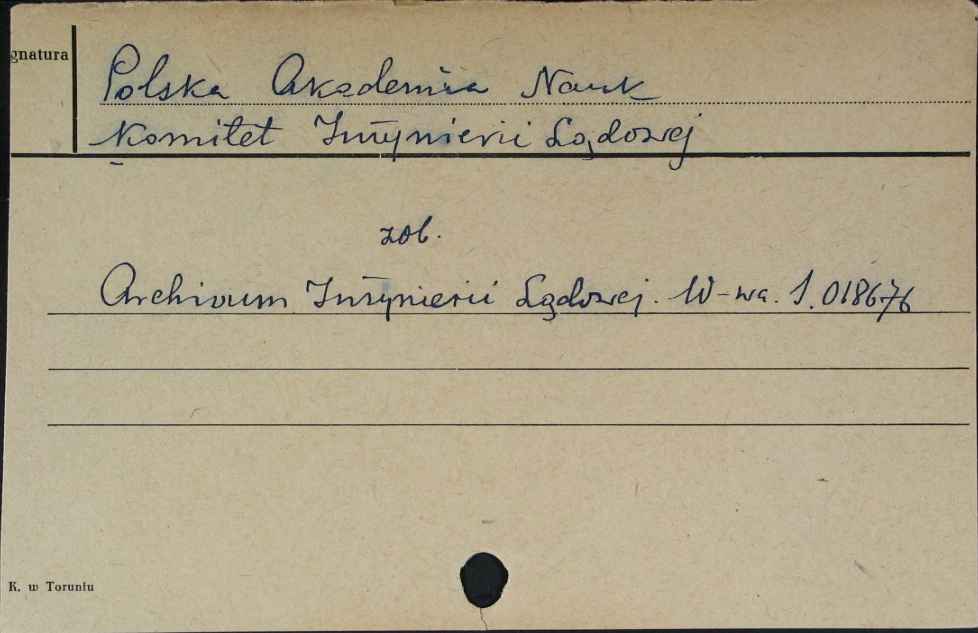 gnatura
Polska Akademia Nauk
Komitet Inżynierii Lądowej
zob.
Archiwum Inżynierii Lądowej. W-wa. S. 018676
K. w Toruniu